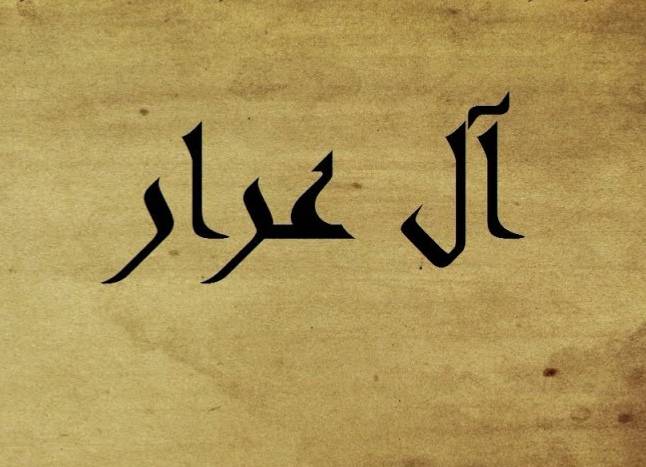 آل عرار